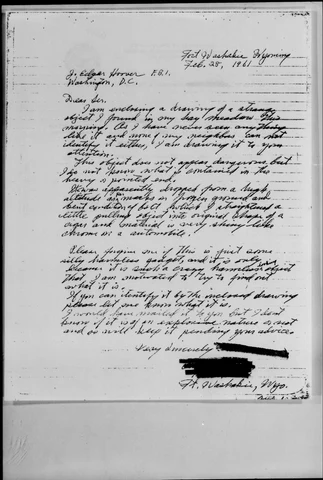 Fort Washakie Wyoming
Feb. 28, 1961
J. Edgar Hoover F.B.I.
Washington, D.C.
Dear Sir,
I am enclosing a drawing of a strange
object I found in my hay meadow this
morning. As I have never seen anything
like it and none of my neighbors can not
identify it either, I am drawing it to your
attention.
This object does not appear dangerous but
I do not know what is contained in the
heavy pointed end.
It was apparently dropped from a high
altitude as marks in frozen ground and
bent condition of it which I straightened a
little putting object into original shape of a
cigar and material is very shiny like
chrome on a automobile.
Please forgive me if this is just some
silly harmless gadget, and it is only
because it is such a crazy harmless object
that I am motivated to try to find out
what it is.
If you can identify it by the enclosed drawing
please let me know what it is.
I would have mailed it to you but I dont
know if it is of an explosive nature or not
and so will keep it pending your advice.
Very Sincerely
Ft. Washakie, Wyo.